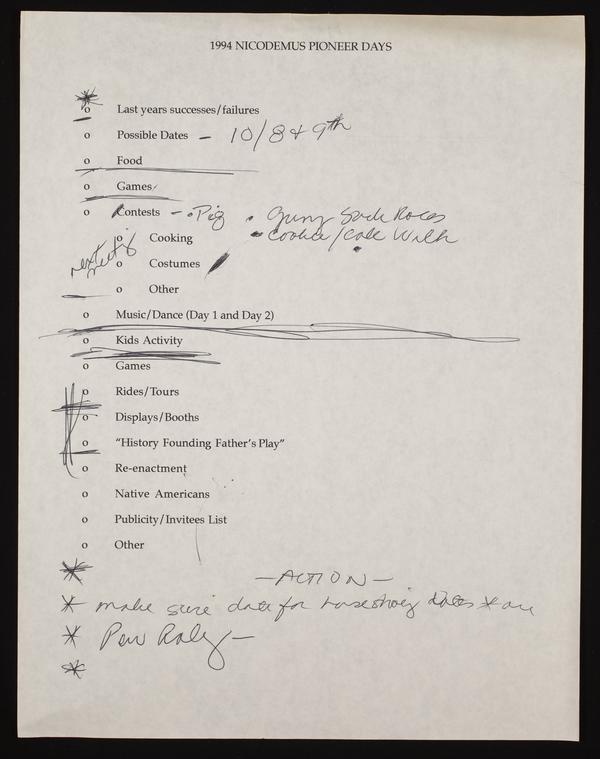 1994 NICODEMUS PIONEER DAYS
o Last years successes/failures
o Possible Dates – 10/8 & 9th
o Food
o Games
o Contests – • Pig • Guny Sack Races
o Cooking • Cookie/Cake Walk
next
o Costumes
o Other
o Music/Dance (Day 1 and Day 2)
o Kids Activity
o Games
o Rides/Tours
o Displays/Booths
o "History Founding Father's Play"
o Re-enactment
o Native Americans
o Publicity/Invitees List
o Other
*
– ACTION –
* make sure date for dates * are
*
*